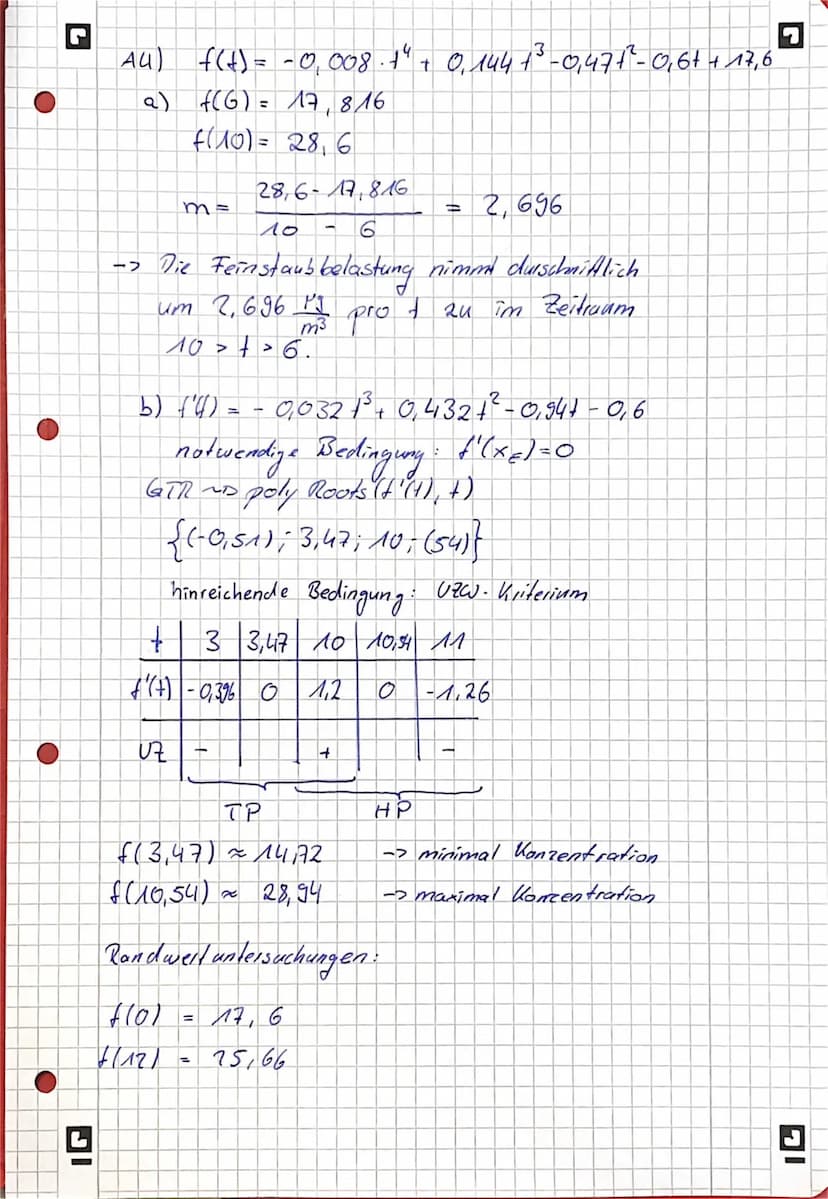 A4) f(t) = -0,008·t⁴ + 0,144t³-0,47t²-0,6t+17,6
a) f(6) = 17,816
f(10) = 28,6
m = (28,6-17,816)/(10 - 6) = 2,696
-> Die Feinstaubbelastung nimmt durschnittlich
um 2,696 µg/m³ pro t zu im Zeitraum
10 > t > 6.
b) f'(t) = -0,032t³+ 0,432t²-0,94t-0,6
notwendige Bedingung: f'(x_E)=0
GTR ~> poly Roots(f'(t), t)
{(-0,51); 3,47; 10,-(54)}
hinreichende Bedingung: VZW-Kriterium
t | 3 | 3,47 | 10 | 10,54 | 11
f'(t) | -0,396 | 0 | 1,2 | 0 | -1,26
VZ | - | | + | | -
TP HP
f(3,47) ≈ 14,72 -> minimal Konzentration
f(10,54) ≈ 28,94 -> maximal Konzentration
Randwertuntersuchungen:
f(0) = 17,6
f(12) = 25,66